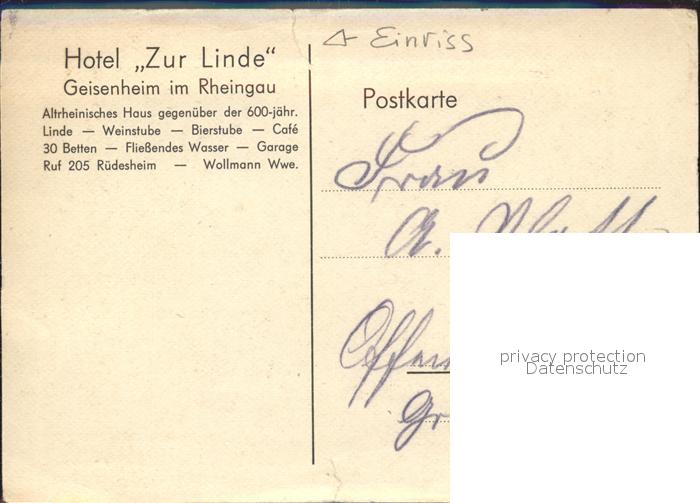 Hotel „Zur Linde“
Geisenheim im Rheingau
Altrheinisches Haus gegenüber der 600-jähr.
Linde — Weinstube — Bierstube — Café
30 Betten — Fließendes Wasser — Garage
Ruf 205 Rüdesheim — Wollmann Wwe.
Einriss
Postkarte
Frau
A.
privacy protection
Datenschutz